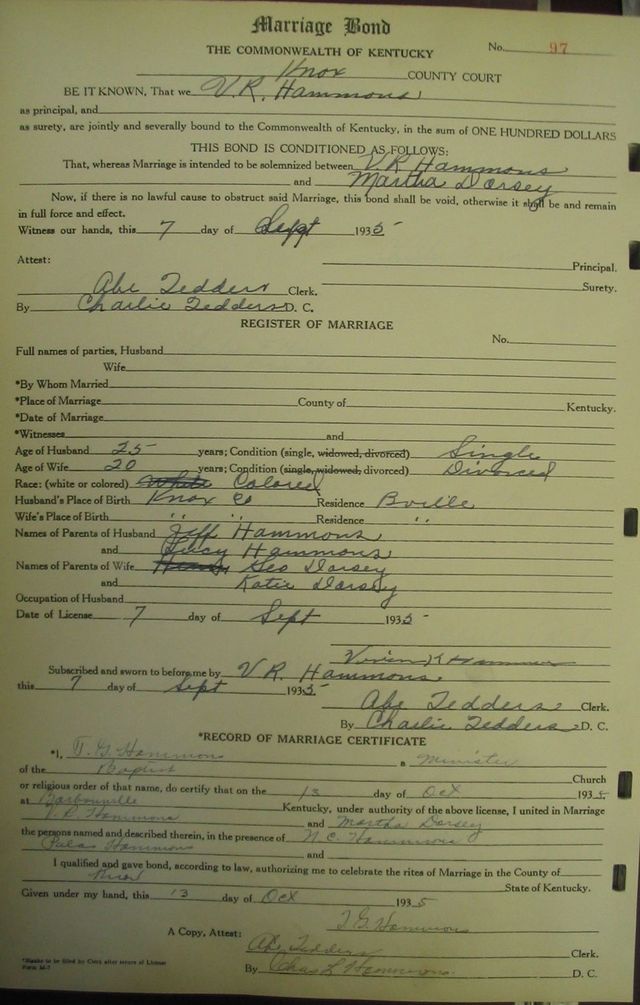 Marriage Bond
THE COMMONWEALTH OF KENTUCKY
No. 97
Knox COUNTY COURT
BE IT KNOWN, That we V.R. Hammons
as principal, and
as surety, are jointly and severally bound to the Commonwealth of Kentucky, in the sum of ONE HUNDRED DOLLARS
THIS BOND IS CONDITIONED AS FOLLOWS:
That, whereas Marriage is intended to be solemnized between V R Hammons
and Martha Dorsey
Now, if there is no lawful cause to obstruct said Marriage, this bond shall be void, otherwise it shall be and remain
in full force and effect.
Witness our hands, this 7 day of Sept 1935
Attest:
Principal.
Abe Tedders Clerk.
Surety.
By Charlie Tedders D. C.
REGISTER OF MARRIAGE
No.
Full names of parties, Husband
Wife
*By Whom Married
*Place of Marriage County of Kentucky.
*Date of Marriage
*Witnesses and
Age of Husband 25 years; Condition (single, widowed, divorced) Single
Age of Wife 20 years; Condition (single, widowed, divorced) Divorced
Race: (white or colored) White Colored
Husband's Place of Birth Knox Co Residence Bville
Wife's Place of Birth " " Residence "
Names of Parents of Husband Jeff Hammons
and Lucy Hammons
Names of Parents of Wife Geo Dorsey
and Katie Dorsey
Occupation of Husband
Date of License 7 day of Sept 1935
Subscribed and sworn to before me by V R. Hammons
this 7 day of Sept 1935
Abe Tedders Clerk.
By Charlie Tedders D. C.
*RECORD OF MARRIAGE CERTIFICATE
*I, T. G. Hammons a Minister
of the Baptist Church
or religious order of that name, do certify that on the 13 day of Oct 1935
at Barbourville Kentucky, under authority of the above license, I united in Marriage
V. R. Hammons and Martha Dorsey
the persons named and described therein, in the presence of N. C. Hammons
Hammons and
I qualified and gave bond, according to law, authorizing me to celebrate the rites of Marriage in the County of
Knox State of Kentucky.
Given under my hand, this 13 day of Oct 1935
T G. Hammons
A Copy, Attest:
Abe Tedders Clerk.
By Chas L Hammons D. C.
*Blanks to be filled by Clerk after return of License
Form M-7